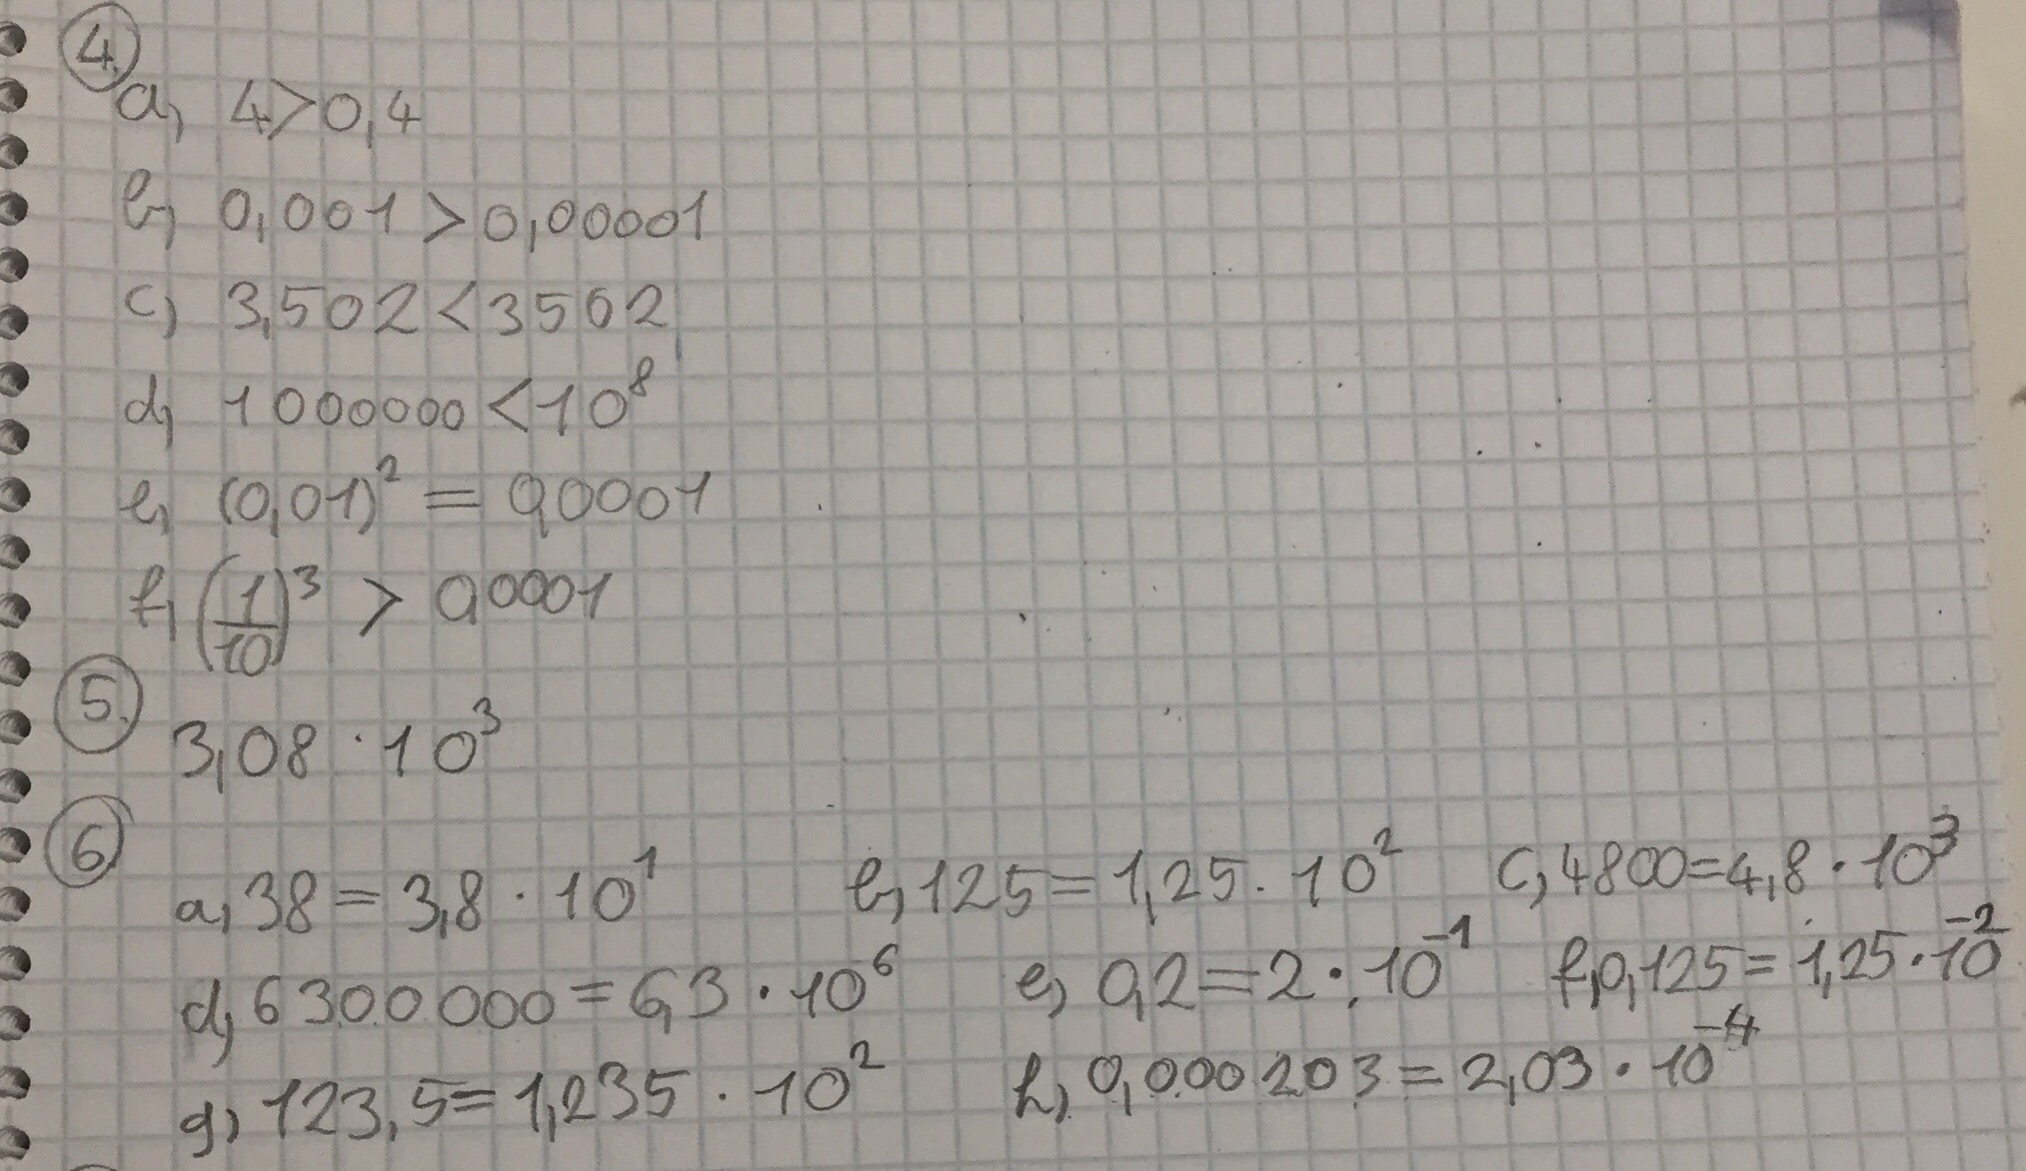 4.
a, 4>0,4
b, 0,001 > 0,00001
c) 3,502 < 3502
d, 1000000 < 10⁸
e, (0,01)² = 0,0001
f, (1/10)³ > 0,0001
5.
3,08 · 10³
6
a, 38 = 3,8 · 10¹ b, 125 = 1,25 · 10² c, 4800 = 4,8 · 10³
d, 6300000 = 6,3 · 10⁶ e, 0,2 = 2 · 10⁻¹ f, 0,125 = 1,25 · 10⁻²
g, 123,5 = 1,235 · 10² h, 0,000203 = 2,03 · 10⁻⁴